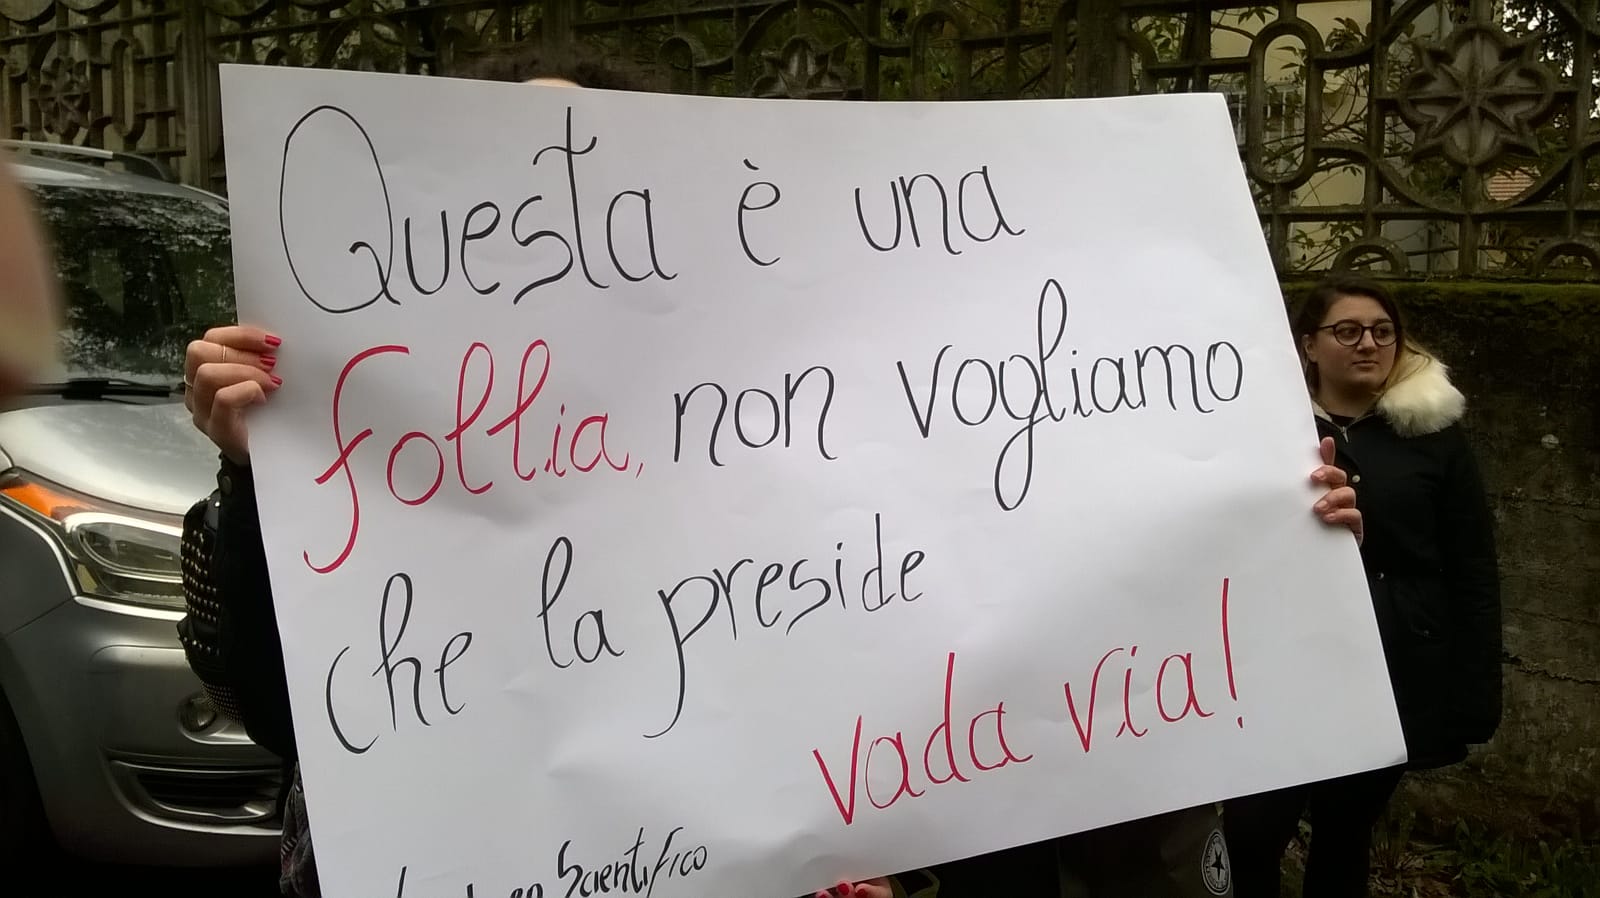 Questa è una
follia, non vogliamo
che la preside
vada via!
Scientifico